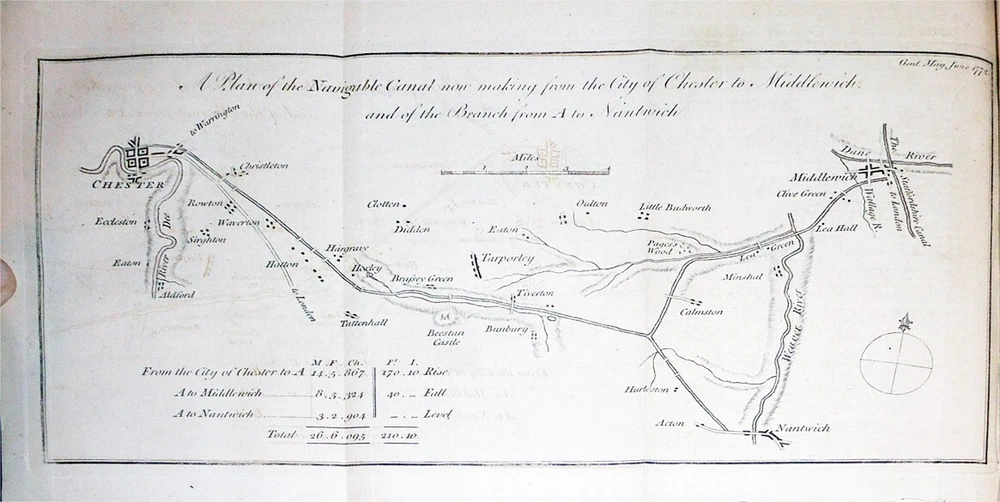 Gent. Mag. June 1772
A Plan of the Navigable Canal now making from the City of Chester to Middlewich,
and of the Branch from A to Nantwich
to Warrington
CHESTER
Christleton
Miles
1 2 3
Dane River
The Staffordshire Canal
Middlewich
Clive Green
Wallage R.
to London
Rowton
Clotten
Oulton
Little Budworth
Eccleston
River Dee
Waverton
Didden
Lea Hall
Sirghton
Eaton
Hargrave
Pages's Wood
Lea Green
Eaton
Hatton
Horley
Tarporley
Minshal
Brassey Green
Aldford
to London
Tiverton
Calmston
Tattenhall
Beestan Castle
Bunbury
Weaver River
M. F. Ch. Ft. I.
From the City of Chester to A 14.5.867 170.10 Rise
A to Middlewich 8.5.324 40.– Fall
A to Nantwich 3.2.904 –.– Level
Total 26.6.095 210.10
Hurleston
Acton
Nantwich